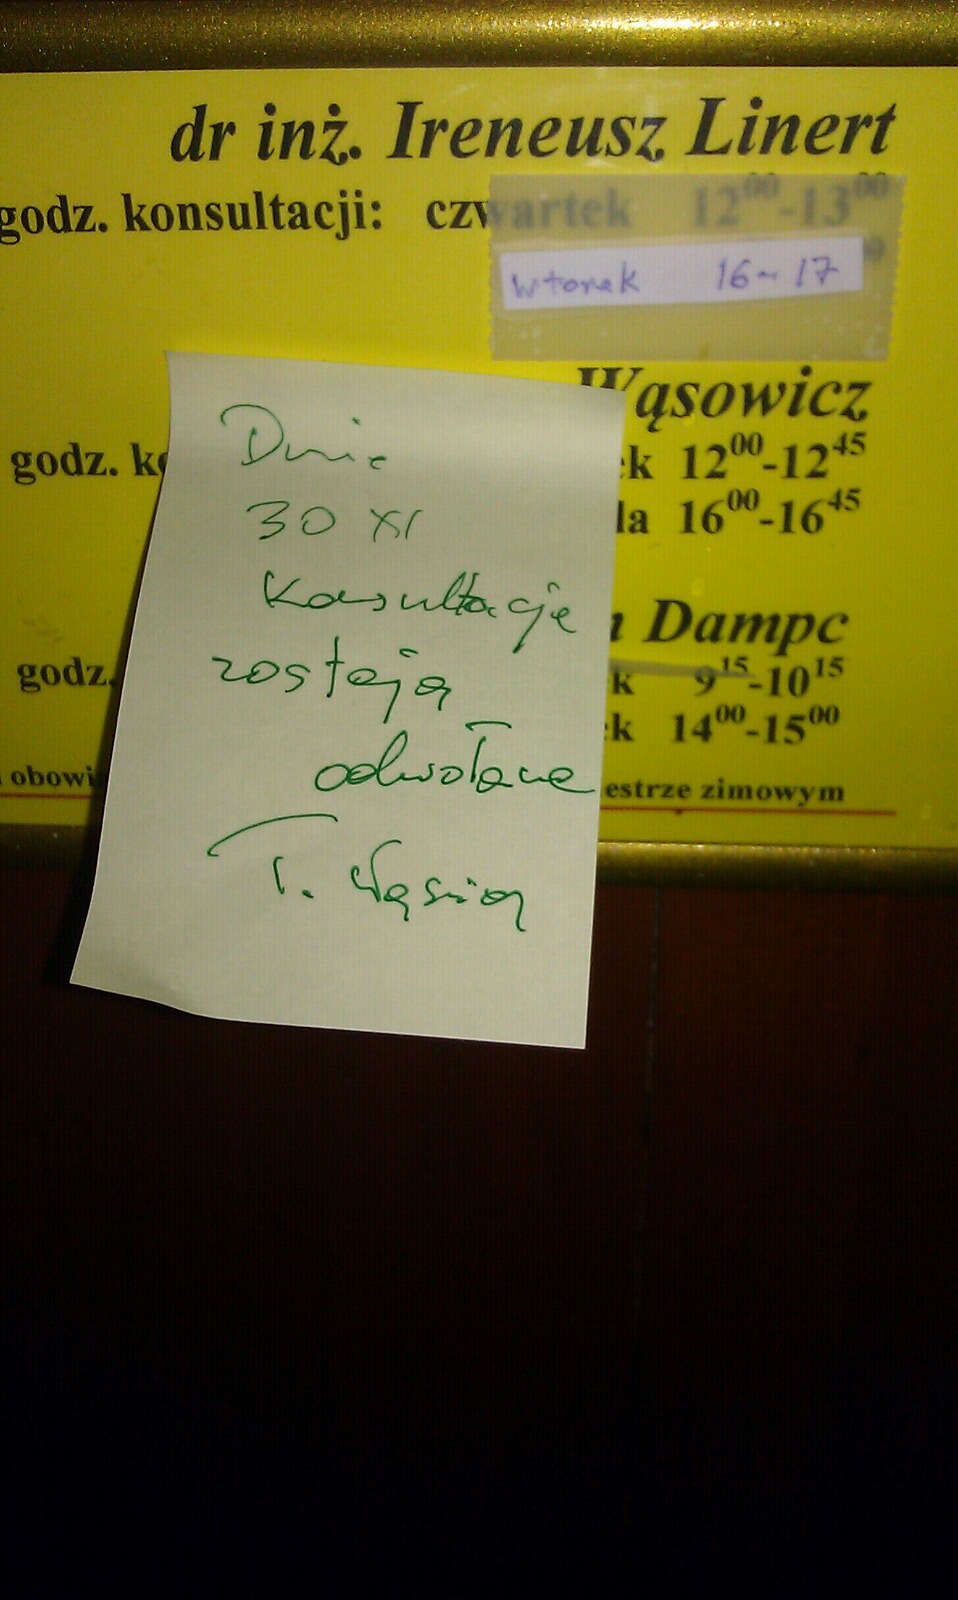 dr inż. Ireneusz Linert
godz. konsultacji: czwartek 12⁰⁰-13⁰⁰
wtorek 16-17
Wąsowicz
godz. 12⁰⁰-12⁴⁵
16⁰⁰-16⁴⁵
Dampc
godz. 9¹⁵-10¹⁵
14⁰⁰-15⁰⁰
zimowym
Dnia
30 XI
Konsultacje
zostają
odwołane
T.